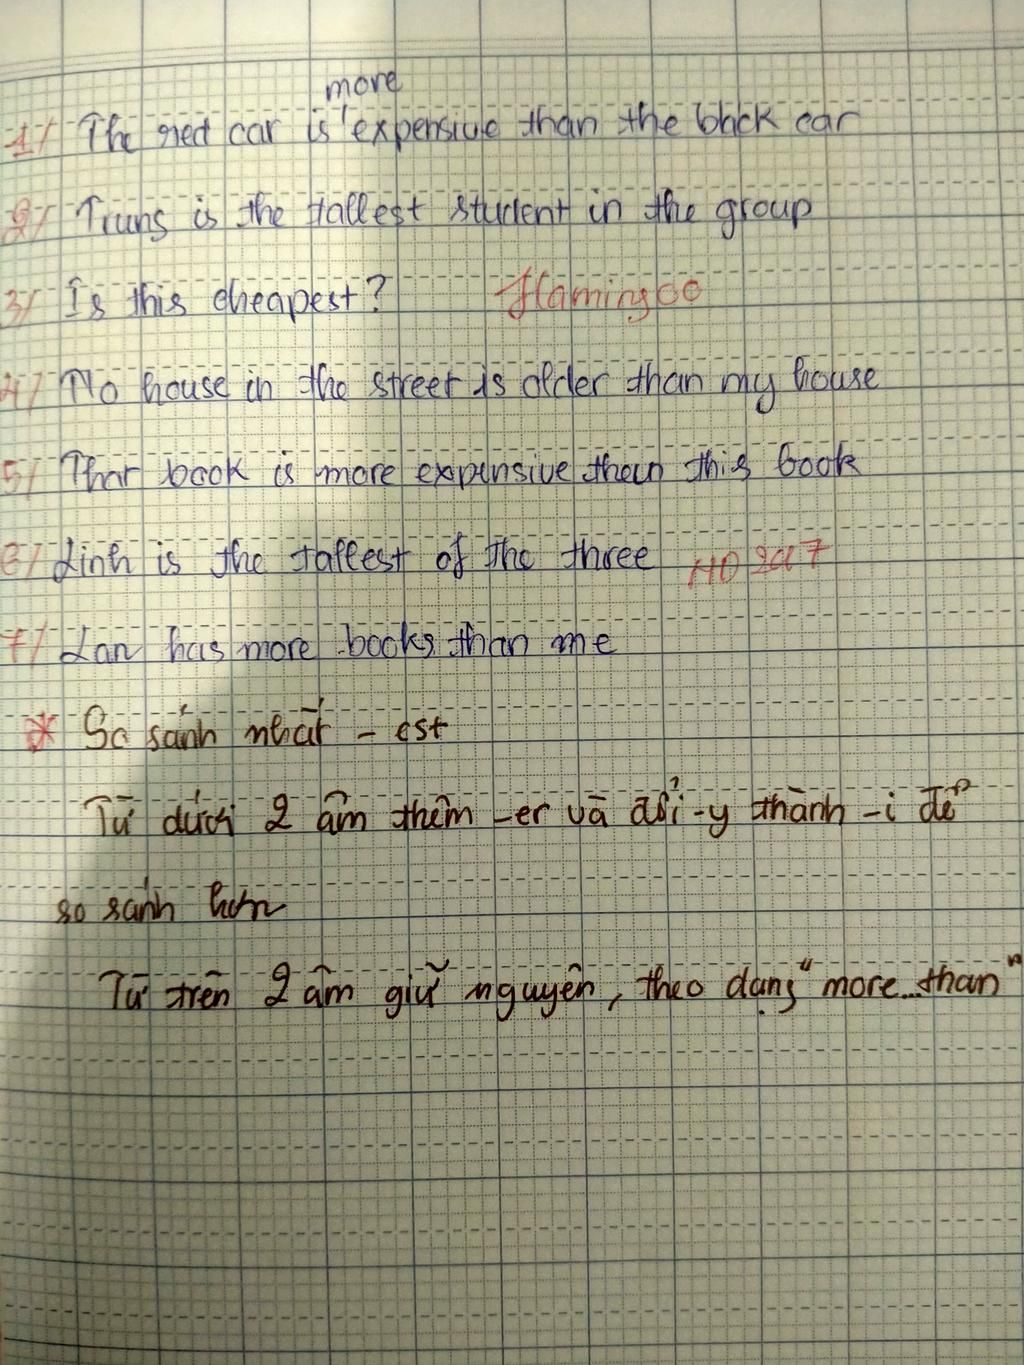 more
1/ The red car is expensive than the black car
2/ Trung is the tallest student in the group
3/ Is this cheapest? Flamingoo
4/ No house in the street is older than my house
5/ That book is more expensive than this book
6/ Linh is the tallest of the three
7/ Lan has more books than me
* So sánh nhất - est
Từ dưới 2 âm thêm -er và đổi -y thành -i để
so sánh hơn
Từ trên 2 âm giữ nguyên, theo dạng "more...than"